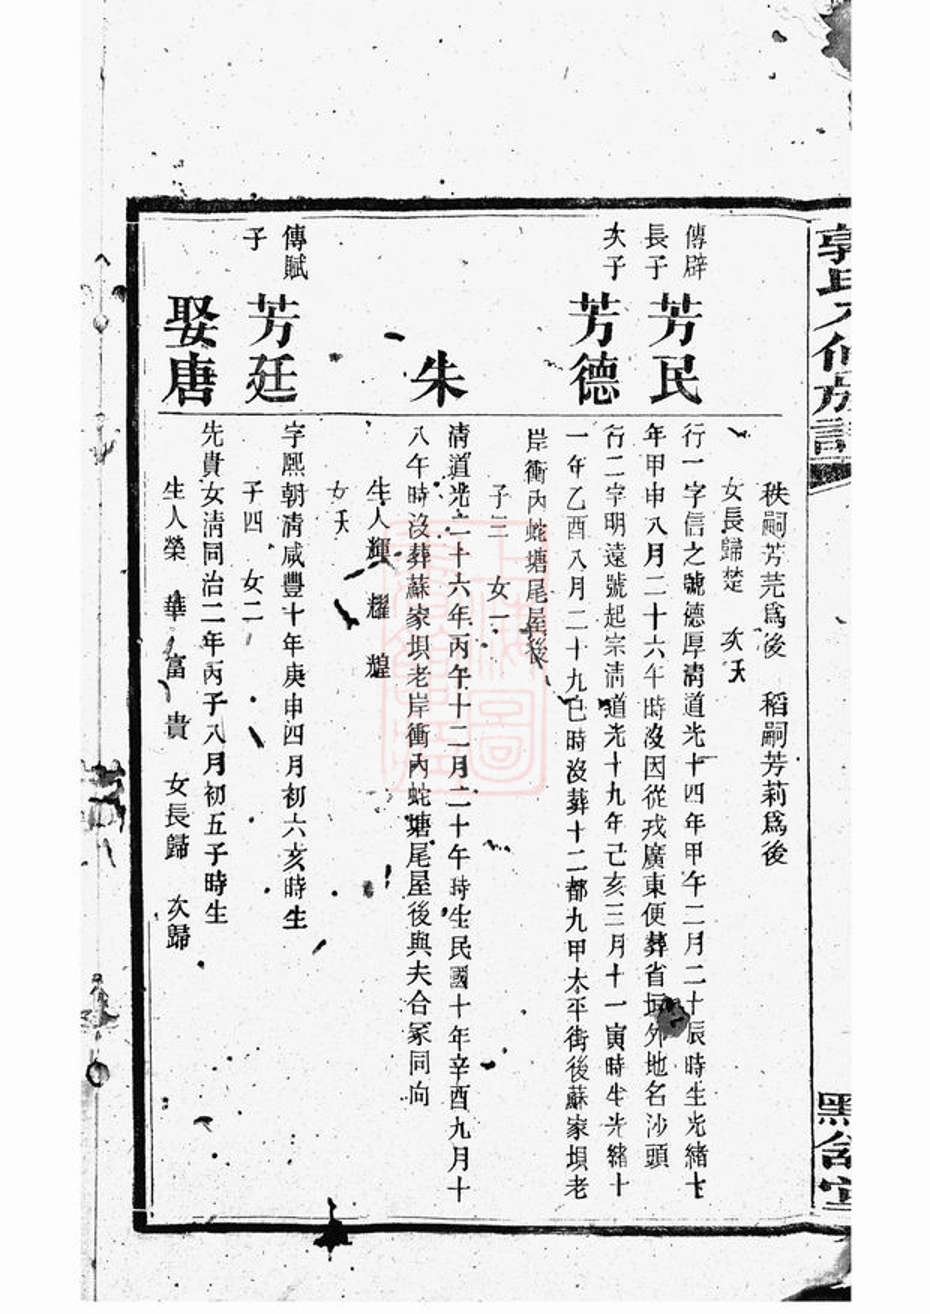 秩嗣芳芫爲後　稻嗣芳莉爲後
女長歸楚　次夭
傳辟
長子
芳民
行一字信之號德厚淸道光十四年甲午二月二十辰時生光緖十
年甲申八月二十六午時沒因從戎廣東便葬省垣外地名沙頭
次子
芳德
行二字明遠號起宗淸道光十九年己亥三月十一寅時生光緖十
一年乙酉八月二十九巳時沒葬十二都九甲太平街後蘇家垻老
岸衝內蛇塘尾屋後
子三　女一
朱
淸道光二十六年丙午十二月二十午時生民國十年辛酉九月十
八午時沒葬蘇家垻老岸衝內蛇塘尾屋後與夫合冢同向
生人輝　耀　煌
女夭
傳賦
子
芳廷
字熙朝淸咸豐十年庚申四月初六亥時生
子四　女二
娶唐
先貴女淸同治二年丙子八月初五子時生
生人榮　華　富　貴　女長歸　次歸